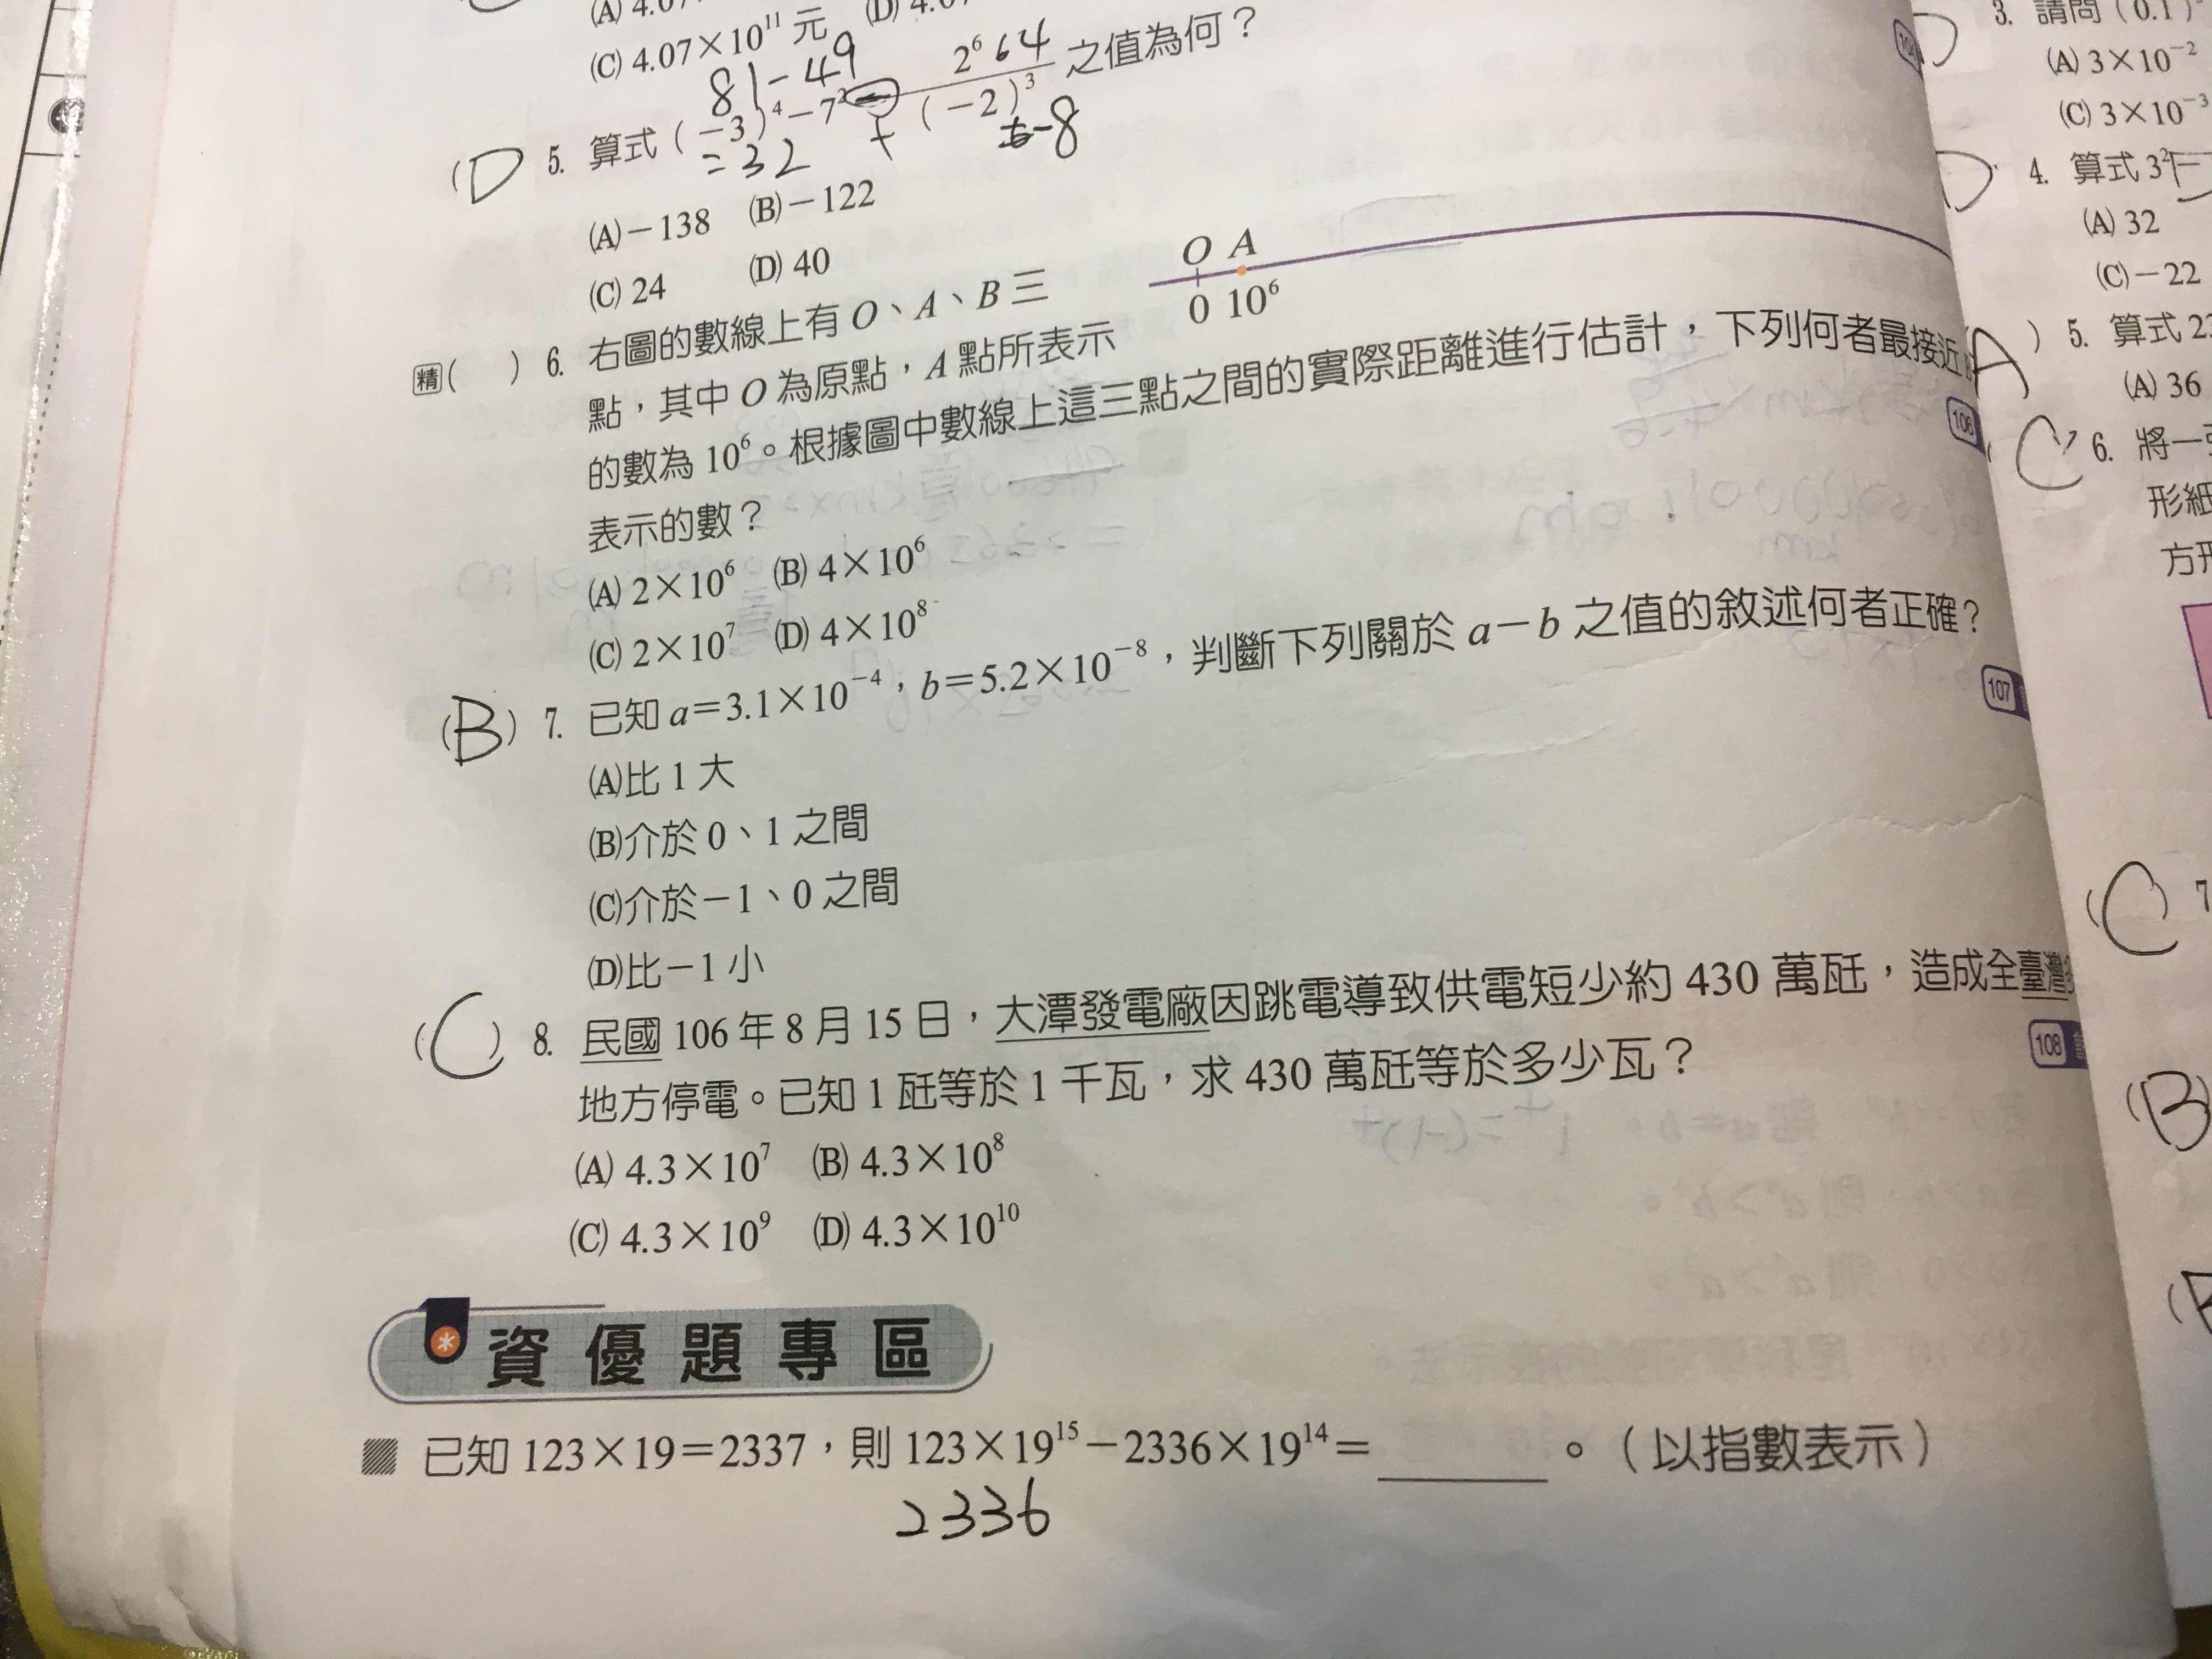 (C) 4.07×10¹¹ 元
81-49
(D) 5. 算式 (-3)⁴-7²- 2⁶/(-2)³ 之值為何？
64
=32
+
-8
(A)-138 (B)-122
(C) 24 (D) 40
精( ) 6. 右圖的數線上有 O、A、B 三
點，其中 O 為原點，A 點所表示
的數為 10⁶。根據圖中數線上這三點之間的實際距離進行估計，下列何者最接近
表示的數？
O A
0 10⁶
106
(A) 2×10⁶ (B) 4×10⁶
(C) 2×10⁷ (D) 4×10⁸
(B) 7. 已知 a=3.1×10⁻⁴，b=5.2×10⁻⁸，判斷下列關於 a-b 之值的敘述何者正確？
107
(A)比 1 大
(B)介於 0、1 之間
(C)介於-1、0 之間
(D)比-1 小
(C) 8. 民國 106 年 8 月 15 日，大潭發電廠因跳電導致供電短少約 430 萬瓩，造成全臺灣
地方停電。已知 1 瓩等於 1 千瓦，求 430 萬瓩等於多少瓦？
108
(A) 4.3×10⁷ (B) 4.3×10⁸
(C) 4.3×10⁹ (D) 4.3×10¹⁰
資優題專區
已知 123×19=2337，則 123×19¹⁵-2336×19¹⁴= 。（以指數表示）
2336
3. 請問 (0.1)
(A) 3×10⁻²
(C) 3×10⁻³
D 4. 算式 3²
(A) 32
(C)-22
A ) 5. 算式
(A) 36
C 6. 將一
形紙
方形
(C) 7
(B)